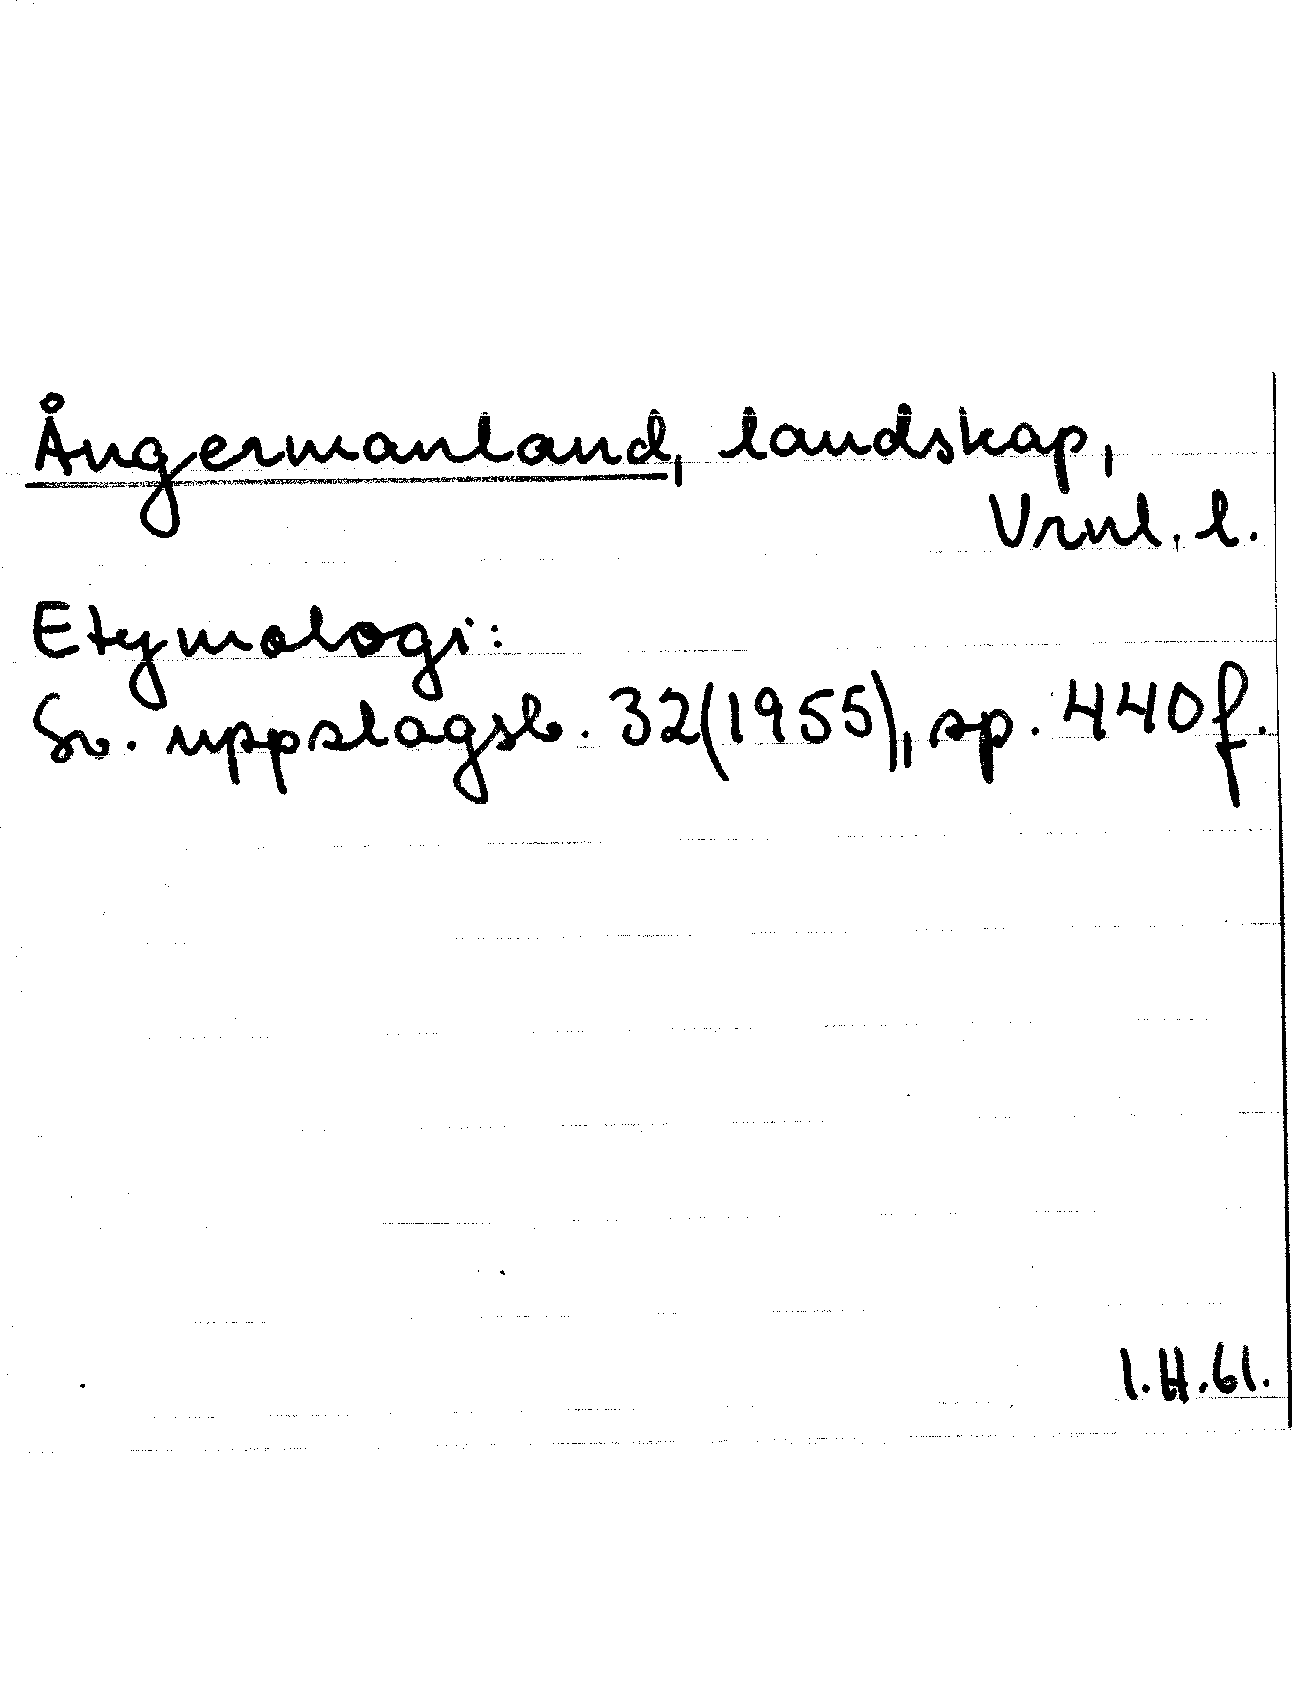 Ångermanland, landskap,
Vrnl. l.
Etymologi:
Sv. uppslagsb. 32(1955), sp. 440f.
I.H.61.